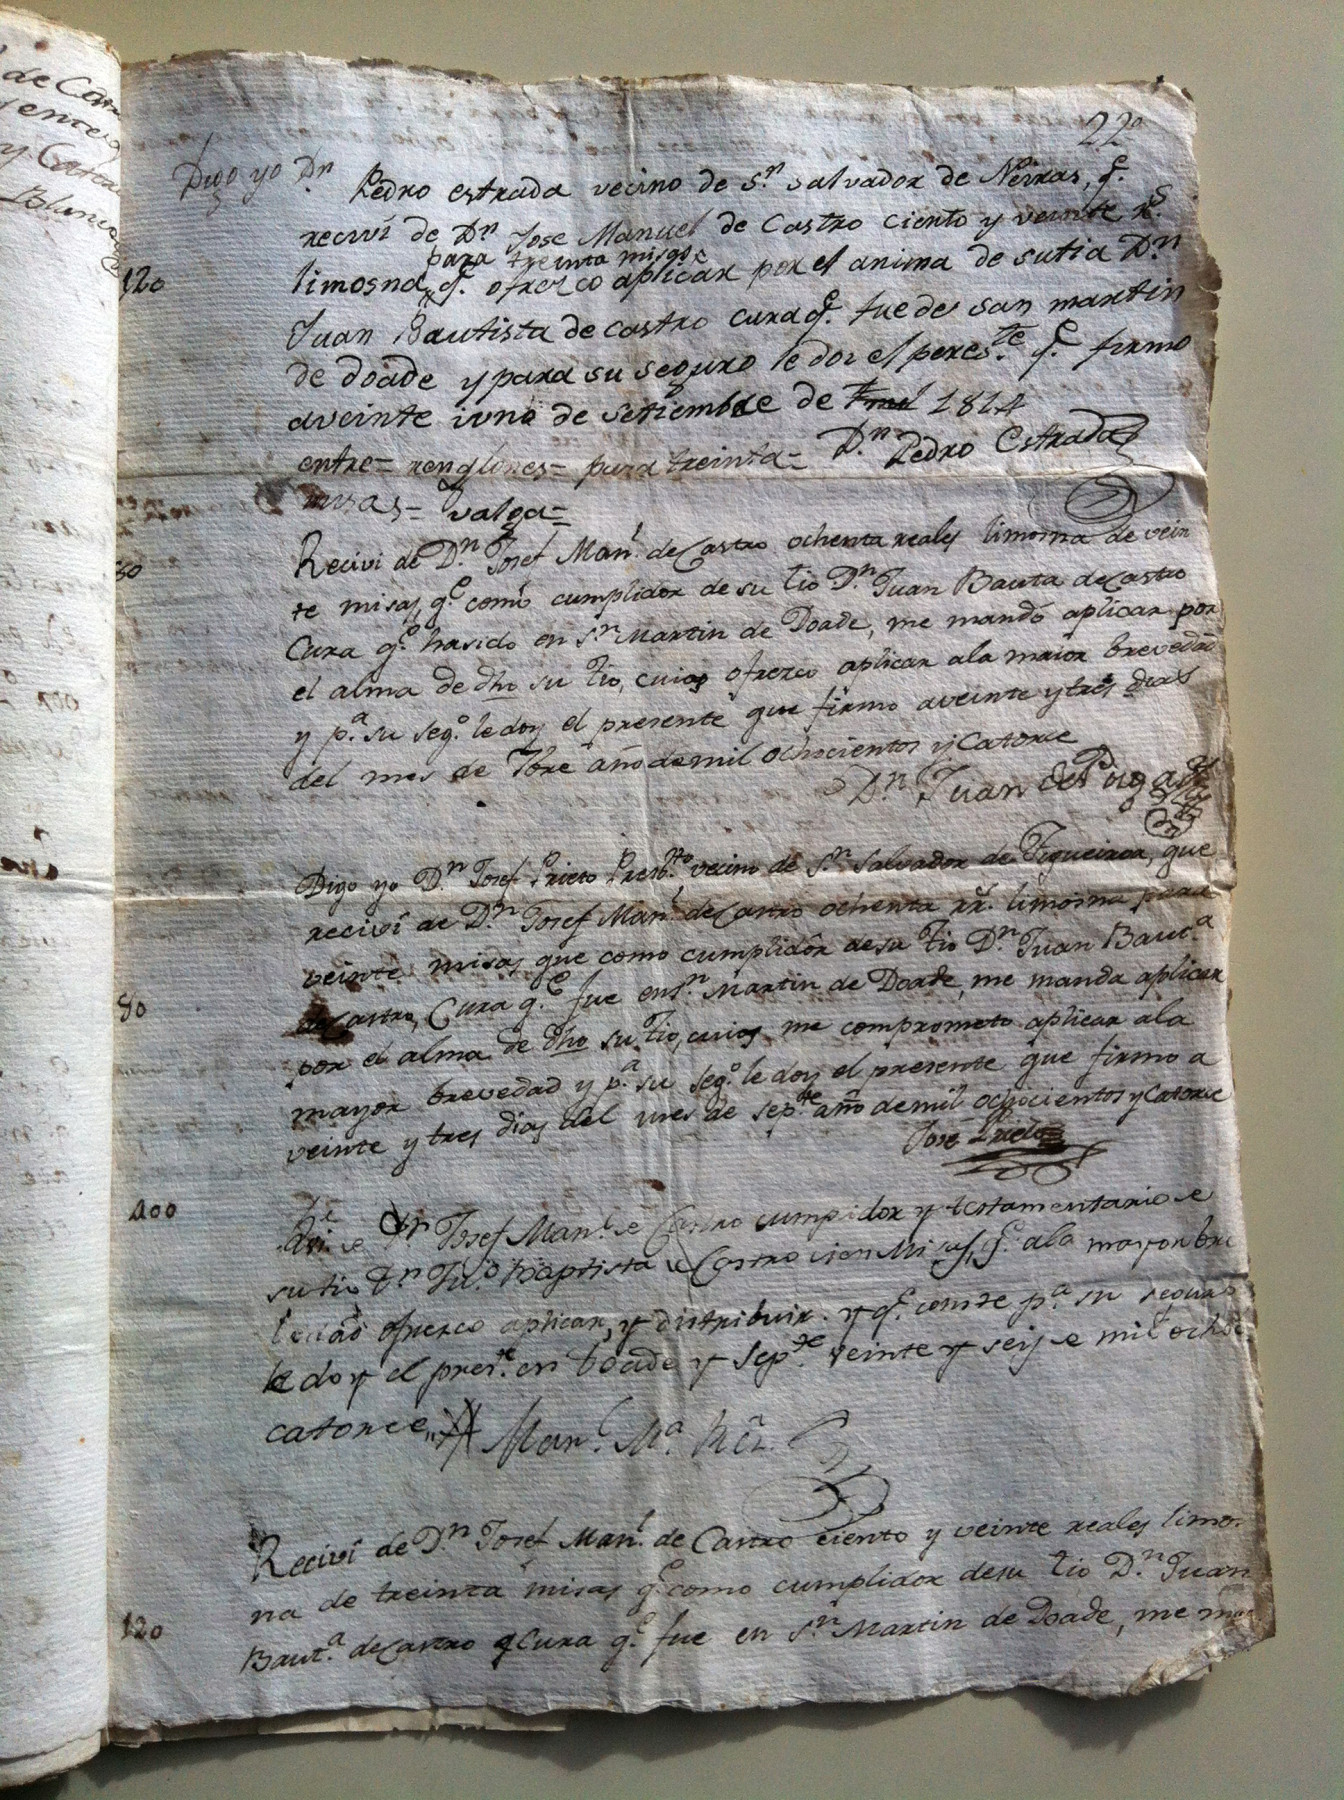 de Cas
y Cator
22º
Digo yo Dn Pedro estrada vecino de Sn salvador de Neiras, qe
recivi de Dn Jose Manuel de Castro ciento y veinte rs
para treinta misas
120 limosna qe ofrezco aplicar por el anima de sutia Dn
Juan Bautista de castro cura qe fue de san martin
de doade y para su seguro le doi el peres.te qe firmo
aveinte iuno de setiembre de 1814
entre = renglones = para treinta = Dn Pedro Estrada
misas = valga =
Recivi de Dn Josef Manl de Castro ochenta reales limosna de vein
80 te misas, qe como cumplidor de su tio Dn Juan Bauta de Castro
Cura qe hasido en Sn Martin de Doade, me mandó aplicar por
el alma de dho su tio, cuias ofrezco aplicar ala maior brevedad
y p.a su seg.o le doy el presente que firmo aveinte y tres dias
del mes de 7bre año demil ochocientos y Catorce
Dn Juan de Puga
Digo yo Dn Josef Prieto Presb.ro vecino de Sn Salvador de Figueiroa, que
recivi de Dn Josef Manl de Castro ochenta rr.s limosna para
veinte misas que como cumplidor desu tio Dn Juan Baut.a
80 de Castro, Cura qe fue en Sn Martin de Doade, me manda aplicar
por el alma de dho su tio, cuias me comprometo aplicar ala
mayor brevedad y p.a su seg.o le doy el presente que firmo a
veinte y tres dias del mes de sep.te año demil ochocientos y Catorce
Jose Prieto
400
Dn Josef Manl de Castro cumplidor y testamentario de
su tio Dn Ju.o Baptista de Castro cien Misas, qe ala mayor bre
bedad ofrezco aplicar, y distribuir. y qe conste p.a su seguro
le doy el pres.te en Doade y Sep.te veinte y seis de mil ochoc
catorce,, Man.l M.a
Recivi de Dn Josef Manl de Castro ciento y veinte reales limos-
na de treinta misas qe como cumplidor desu tio Dn Juan
120 Baut.a de Castro Cura qe fue en Sn Martin de Doade, me man